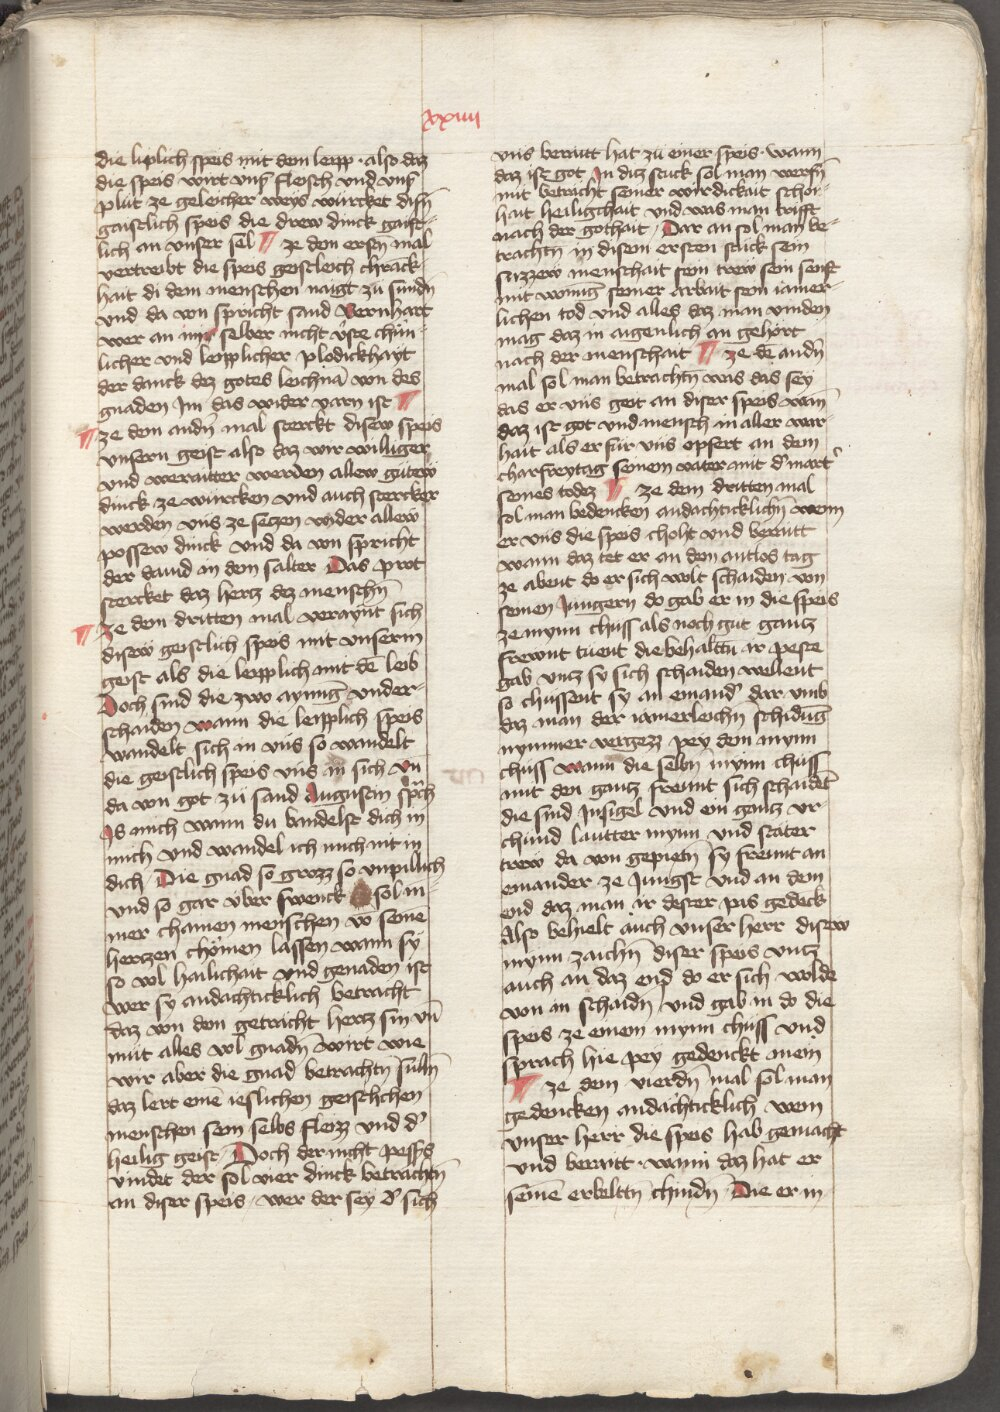 xxiiii
die liplich speis mit dem leipp · also daz
die speis wirt vnsˀ fleisch vnd vnsˀ
plut ze geleicher weys würcket disew̄
gaistlich speis die drew dinck gaist-
lich an vnser sel ¶ ze dem erstn̄ mal
vertreibt die speis geistleich chranck-
hait di dem menschen naigt zu sundn̄
vnd da von spricht sand Bernhart
wer an im selber nicht
licher vnd leipplicher plodickhayt
der danck dez gotes leichnā von des
gnaden Im das wider varn ist ¶
¶ ze dem andn̄ mal sterckt disew speis
vnsern geist also daz wir williger
vnd weraitter werden allew gütew
dinck ze würcken vnd auch stercker
werden vns ze seczen wider allew
possew dinck vnd da von spricht
der dauid in dem salter Das prot
stercket daz hercz dez menschn̄
¶ Ze dem dritten mal veraynt sich
disew geistlich speis mit vnserm
geist als die leipplich mit dē leib
Doch sind die zwo aynūg vnder-
schaiden wann die leipplich speis
wandelt sich in vns so wandelt
die geistlich speis vns in sich vn̄
da von got zu sand Augustin spᵃch
Is mich wann du wandelst dich in
mich vnd wandel ich mich nit in
dich Die gnad so grozz so vnpillich
vnd so gar über swenck sol in-
mer chainen menschen vō seinē
hertzen chömen lassen wann sy
so vol hailichait vnd genaden ist
wer sy andachticklich betracht
daz von dem getracht hertz sin vn̄
müt alles vol gnadn̄ wirt wie
wir aber die gnad betrachtn̄ sülln̄
daz lert einē ieslichen geistlichen
menschen sein selbs fleizz vnd dˀ
heilig geist Doch der nicht pessˀs
vindet der sol vier dinck betrachtn̄
an diser speis / wer der sey dˀ sich
vns beraitt hat zu einer speis · wann
daz ist got In diz stuck sol man werfn̄
mit betracht seiner wirdickait schön-
hait heiligchait vnd was man trifft
nach der gothait / Dar an sol man be-
trachtn̄ in disem ersten stuck sein
suzzew menschait sein trew sein senft
mit wonūg seiner arbait sein iamer-
lichen tod vnd alles daz man vinden
mag daz in aigenlich an gehört
nach der menschait ¶ ze dē andn̄
mal sol man betrachtn̄ was das sey
das er vns geit an diser speis wan̄
daz ist got vnd mensch in aller war-
hait als er für vns opfert an dem
charfreytag seinem vater mit dˀ martˀ
seines todez ¶ ze dem dritten mal
sol man bedencken andachticklichn̄ wenn
er vns die speis choht vnd beraitt
wann daz tet er an dem antlos tag
ze abent do er sich wolt schaiden von
seinen Jungern do gab er in die speis
ze mynn chuss als noch gut gantz
frewnt tuent die behaltn̄ ir peste
gab vntz sy sich schaiden wellent
so chussent sy an einandˀ dar vmb
daz man der iamerleichn̄ schidūg
nymmer vergezz pey dem mynn
chuss wann die selbn̄ mynn chuss
mit den gantz freunt sich schaidēt
die sind Insigel vnd ein gantz vr-
chund lautter mynn vnd stäter
trew da von gepietn̄ sy freunt an
einander ze Jungst vnd an dem
end daz man ir dester pas gedeck
Also behielt auch vnser herr disew
mynn zaichn̄ diser speis vntz
auch an daz end do er sich wolde
von in schaidn̄ vnd gab in do die
speis ze einem mynn chuss vnd
sprach hie pey gedenckt mein
¶ ze dem vierdn̄ mal sol man
gedencken andachticklich wem
vnser herr die speis hab gemacht
vnd beraitt · wann daz hat er
seinē erweltn̄ chindn̄ Die er in